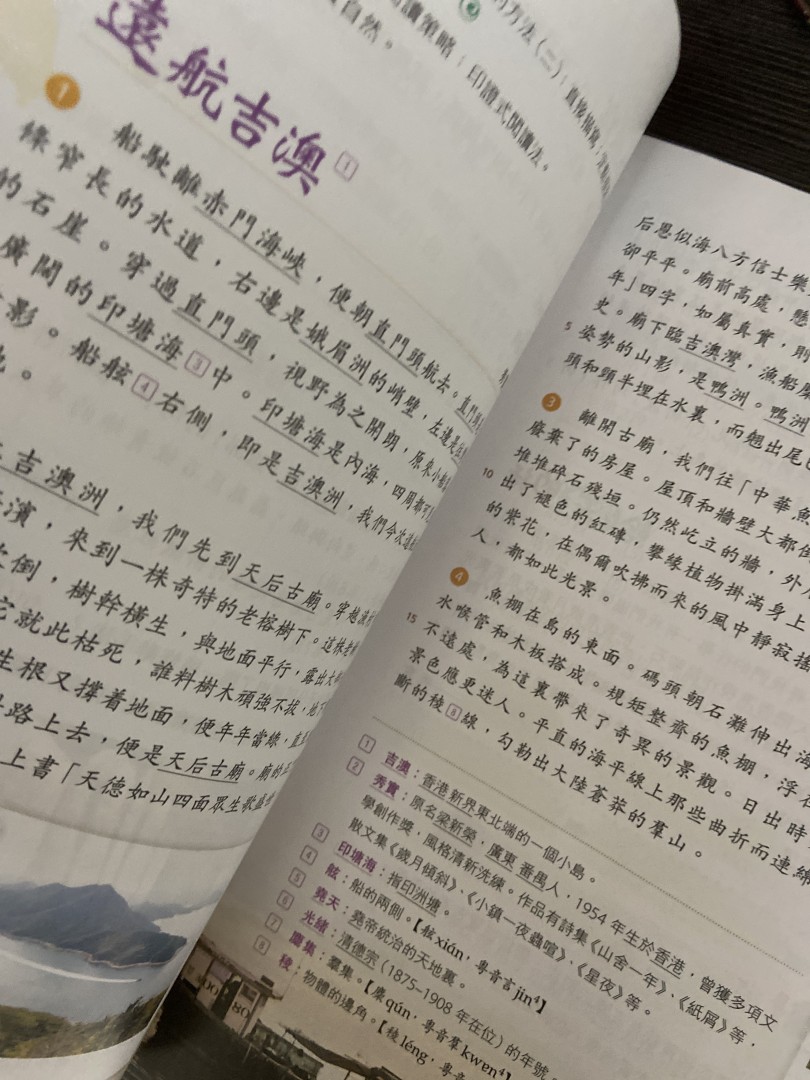 的方法(二):直接描寫
閱讀策略:印證式閱讀法。
自然。
遠航吉澳 1
1
船駛離赤門海峽,便朝直門頭航去。直門頭
條窄長的水道,右邊是娥眉洲的峭壁,左邊是
的石崖。穿過直門頭,視野為之開朗,原來小船
廣闊的印塘海3中。印塘海是內海,四周都
影。船舷4右側,即是吉澳洲,我們今次
吉澳洲,我們先到天后古廟。穿越
濱,來到一株奇特的老榕樹下。這株老榕
倒,樹幹橫生,與地面平行,露出
它就此枯死,誰料樹木頑強不拔,
生根又撐着地面,便年年當綠,
路上去,便是天后古廟。廟的
上書「天德如山四面眾生歌
后恩似海八方信士樂
卻平平。廟前高處,懸
年」四字,如屬真實,則
史。廟下臨吉澳灣,漁船
5 姿勢的山影,是鴨洲。鴨洲
頭和頸半埋在水裏,而翹出尾
3 離開古廟,我們往「中華魚
廢棄了的房屋。屋頂和牆壁大都
堆堆碎石殘垣。仍然屹立的牆,外
10 出了褪色的紅磚,攀緣植物掛滿身上
的紫花,在偶爾吹拂而來的風中靜寂搖
人,都如此光景。
4 魚棚在島的東面。碼頭朝石灘伸出海
水喉管和木板搭成。規矩整齊的魚棚,浮在
15 不遠處,為這裏帶來了奇異的景觀。日出時
景色應更迷人。平直的海平線上那些曲折而連綿
斷的稜8線,勾勒出大陸蒼莽的羣山。
1 吉澳:香港新界東北端的一個小島。
2 秀實:原名梁新榮,廣東番禺人,1954年生於香港,曾獲多項文
學創作獎,風格清新洗練。作品有詩集《山舍一年》、《紙屑》等,
散文集《歲月傾斜》、《小鎮一夜蟲喧》、《星夜》等。
3 印塘海:指印洲塘。
4 舷:船的兩側。【舷xián,粵音言jin⁴】
5 堯天:堯帝統治的天地裏。
6 光緒:清德宗(1875–1908年在位)的年號。
7 麕集:羣集。【麇qún,粵音羣kwen⁴】
8 稜:物體的邊角。【稜léng,粵音